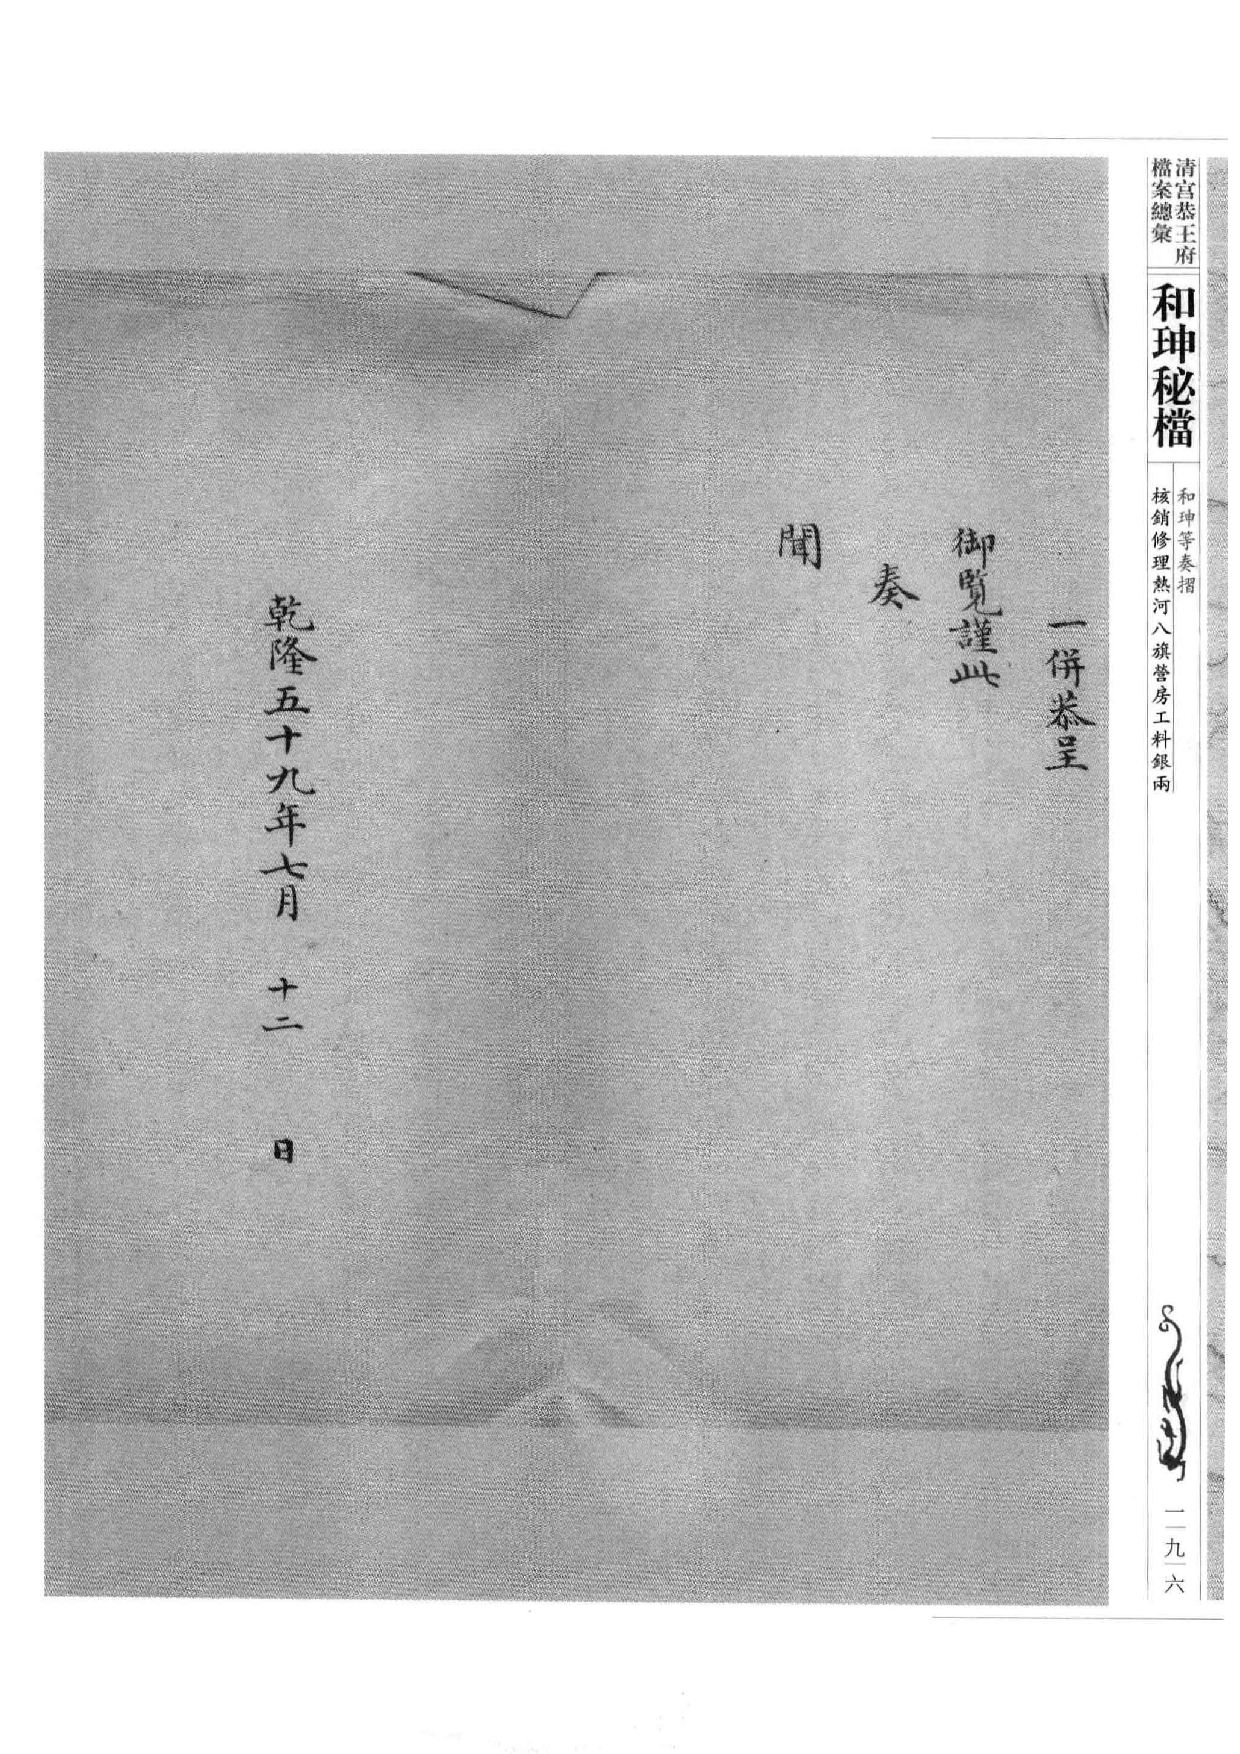 清宮恭王府
檔案總彙
和珅秘檔
和珅等奏摺
核銷修理熱河八旗營房工料銀兩
一併恭呈
御覧謹此
奏
聞
乾隆五十九年七月 十二 日
一九六